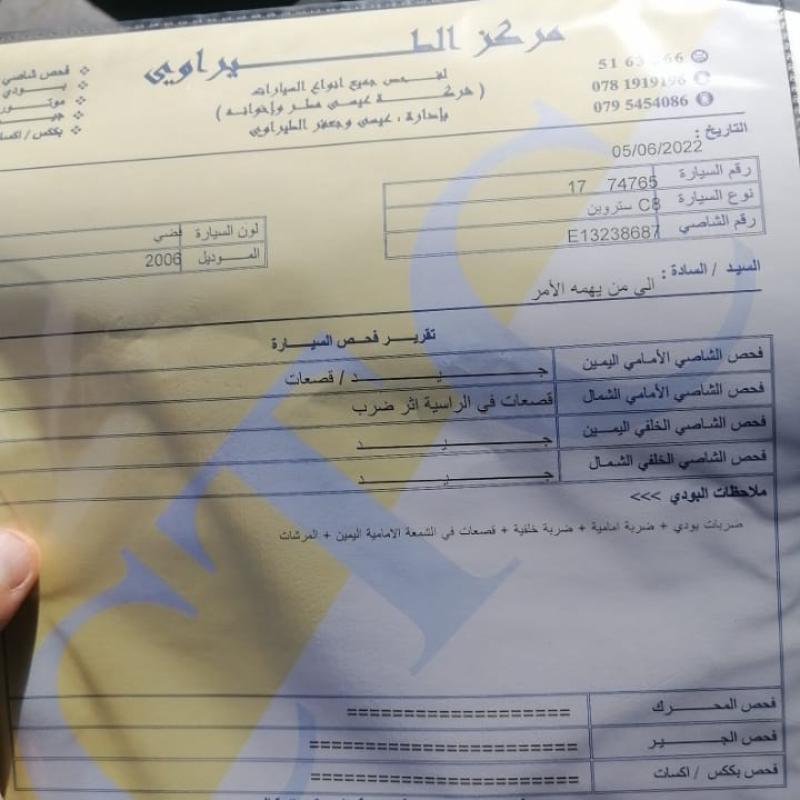 مركز الطيراوي
لفحص جميع انواع السيارات
( شركة عيسى مطر واخوانه )
بإدارة : عيسى وجعفر الطيراوي
51 63 66
078 1919196
079 5454086
فحص شاصي
بودي
موتور
جير
بكس / اكسات
التاريخ : 05/06/2022
رقم السيارة 74765 17
نوع السيارة C8 ستروين
رقم الشاصي E13238687
لون السيارة فضي
الموديل 2006
السيد / السادة : الى من يهمه الأمر
تقرير فحص السيارة
فحص الشاصي الأمامي اليمين جيد / قصعات
فحص الشاصي الأمامي الشمال قصعات في الراسية اثر ضرب
فحص الشاصي الخلفي اليمين جيد
فحص الشاصي الخلفي الشمال جيد
ملاحظات البودي >>>
ضربات بودي + ضربة امامية + ضربة خلفية + قصعات في الشمعة الامامية اليمين + المرشات
فحص المحرك ====================
فحص الجير ========================
فحص بككس / اكسات ========================
CTC